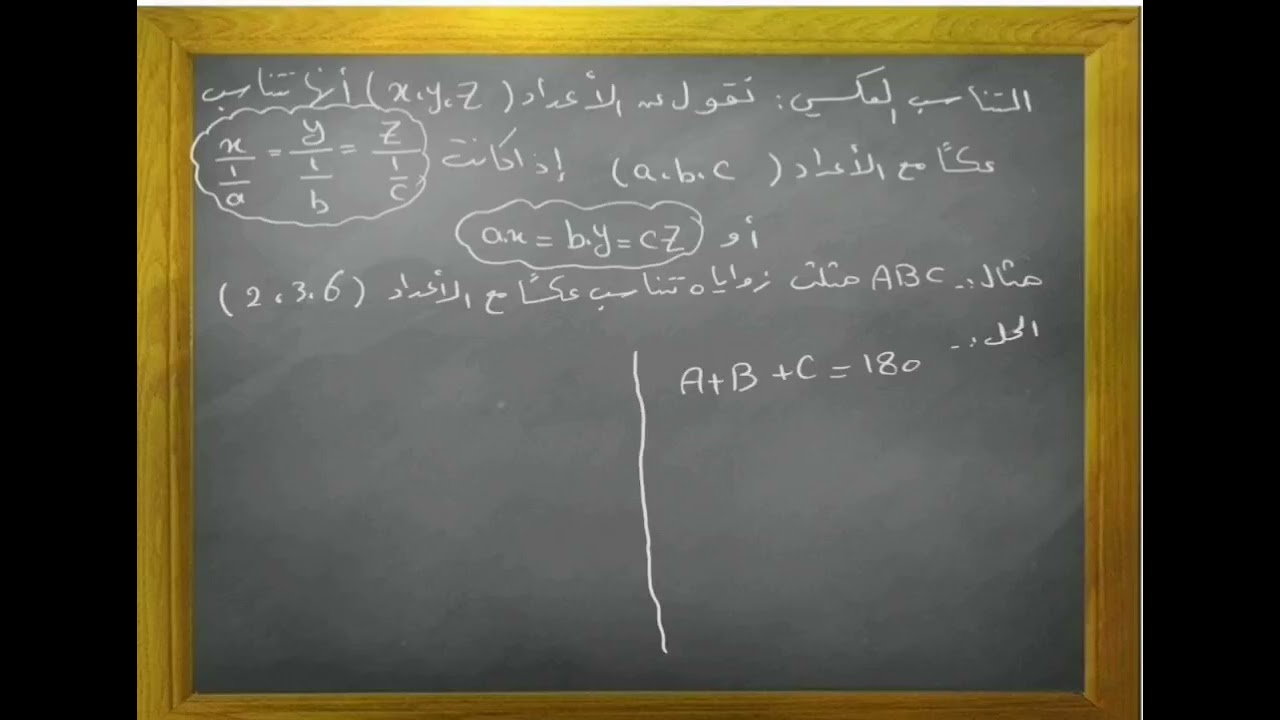 التناسب العكسي: نقول عن الأعداد (x,y,z) أنها تتناسب
عكسًا مع الأعداد (a,b,c) إذا كانت x/(1/a) = y/(1/b) = z/(1/c)
أو a.x = b.y = cz
مثال:- ABC مثلث زواياه تتناسب عكسًا مع الأعداد (2,3,6)
الحل:-
A+B+C=180